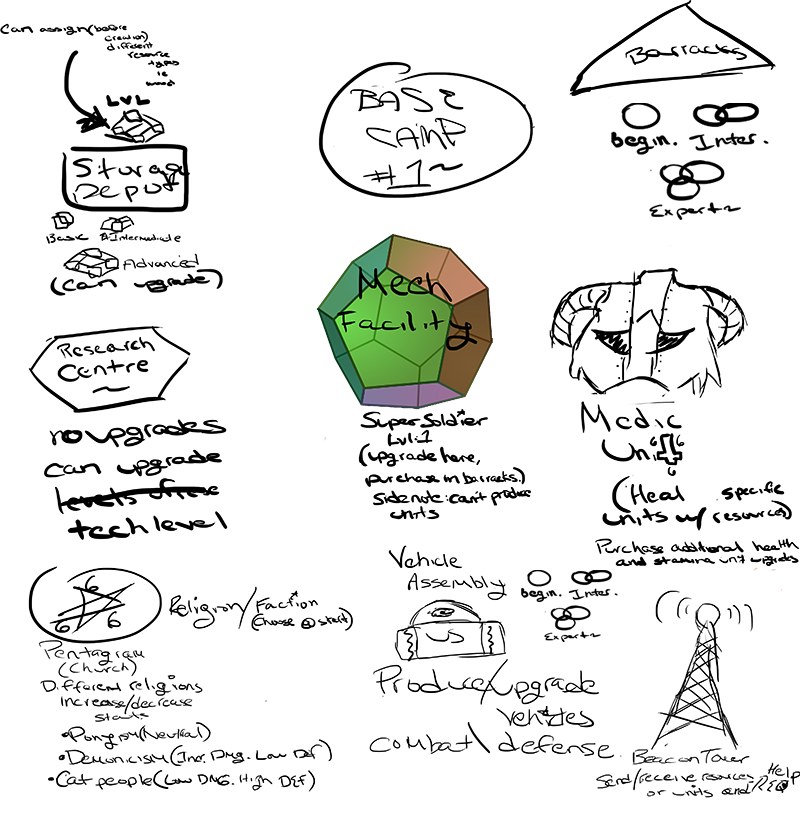 Can assign (before
creation)
different
resource
types
is
LVL
Storage
Depot
Basic Intermediate
Advanced
(Can upgrade)
BASE
CAMP
#1~
Barracks
begin. Inter.
Expert~
Research
Centre
~
no upgrades
can upgrade
levels of
tech level
Mech
Facility
Super Soldier*
Lvl:1
(upgrade here,
purchase in barracks.)
Side note: can't produce
units
Medic
Unit
6 6
6
(Heal specific
units w/ resources)
Purchase additional health
and stamina unit upgrades
6
6 6
Religion/Faction*
(Choose @ start)
Pentagram
(Church)
Different religions
increase/decrease
stats
•Ponyism (Neutral)
•Demonicism (Inc. Dmg. Low Def)
•Cat people (Low DMG. High Def)
Vehicle
Assembly
begin. Inter.
Expert~
US
Produce/upgrade
vehicles
combat\defense.
Beacon Tower
Send/receive resources
or units and Help
/REQ